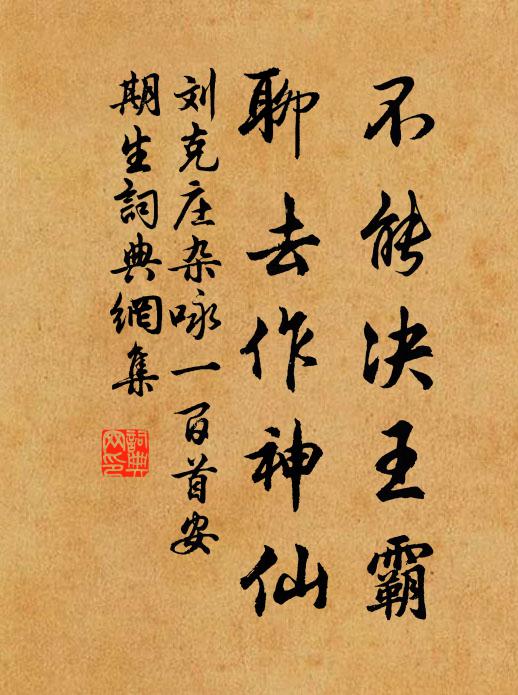 不能决王霸
聊去作神仙
刘克庄杂咏一百首安
期生詞典網集
詞典
网印